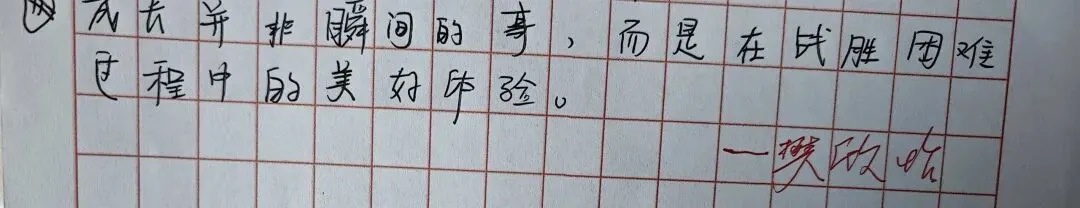 成长并非瞬间的事，而是在战胜困难
过程中的美好体验。
一樊